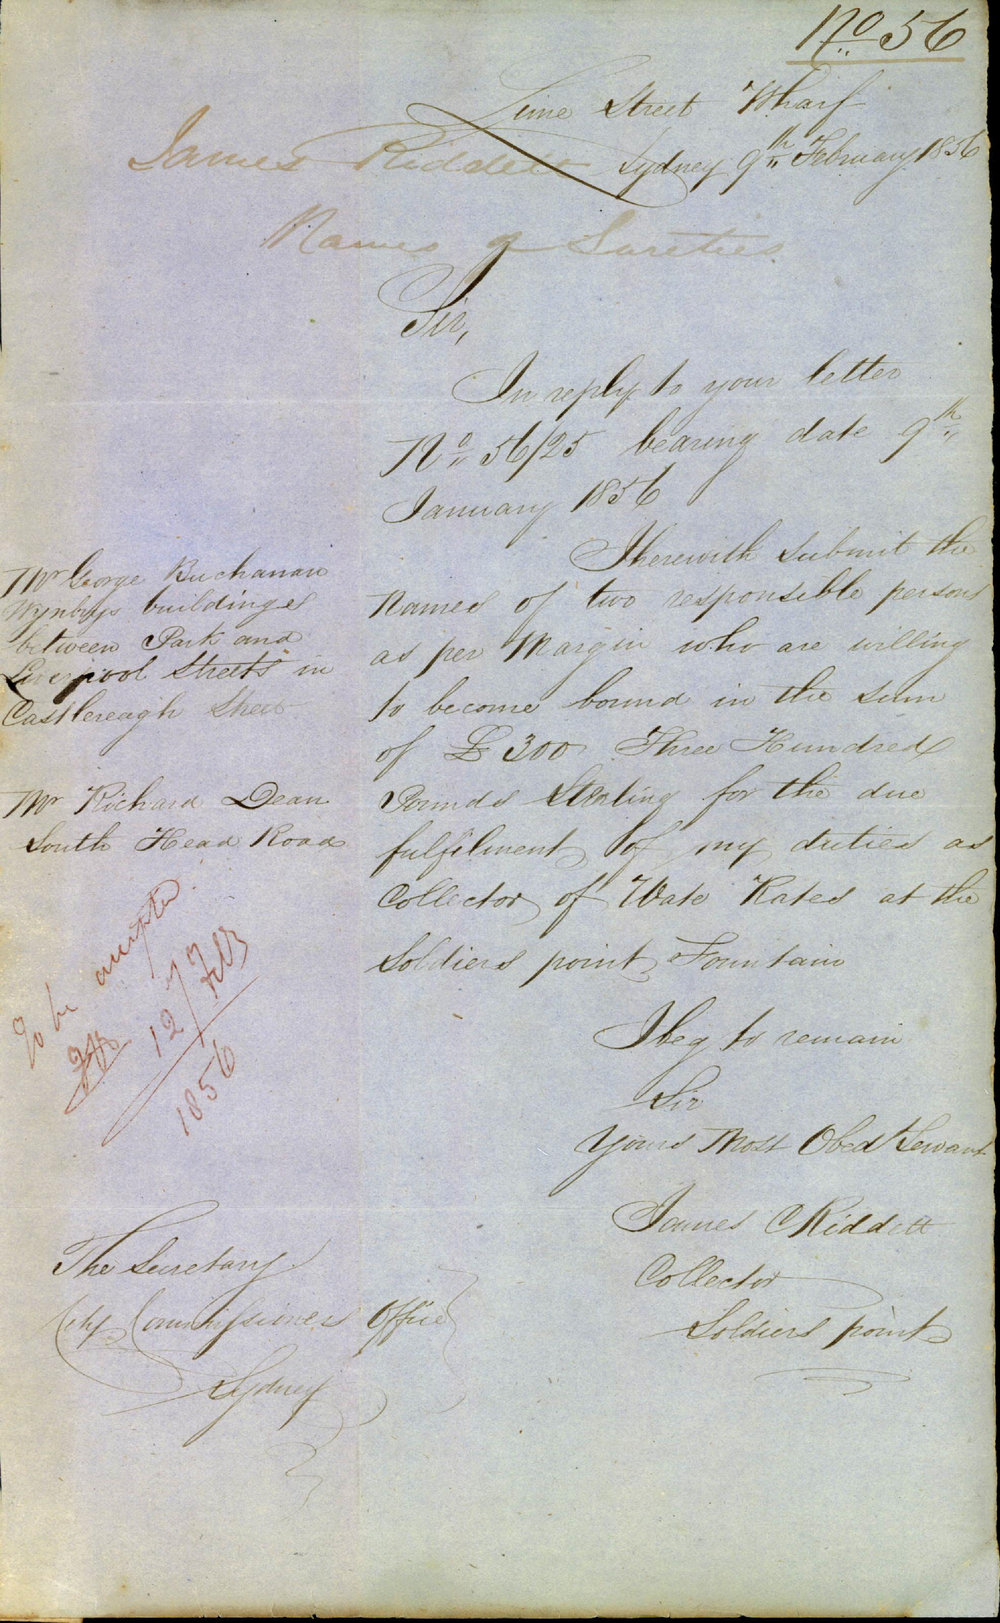 No 56
Lime Street Wharf
Sydney 9th February 1856
James Riddett
Names of Sureties
Sir,
In reply to your letter
No 56/25 bearing date 9th
January 1856
I herewith submit the
Names of two responsible persons
as per Margin who are willing
to become bound in the sum
of £300 Three Hundred
Pounds Sterling for the due
fulfilment of my duties as
Collector of Wate Rates at the
Soldiers point Fountain
Mr George Buchanan
buildings
between Park and
Liverpool Streets in
Castlereagh Street
Mr Richard Dean
South Head Road
To be accepted
12/Feb
1856
I beg to remain
Sir
Yours Most Obed Servant
James Riddett
Collector
Soldiers point
The Secretary
City Commissioners Office
Sydney